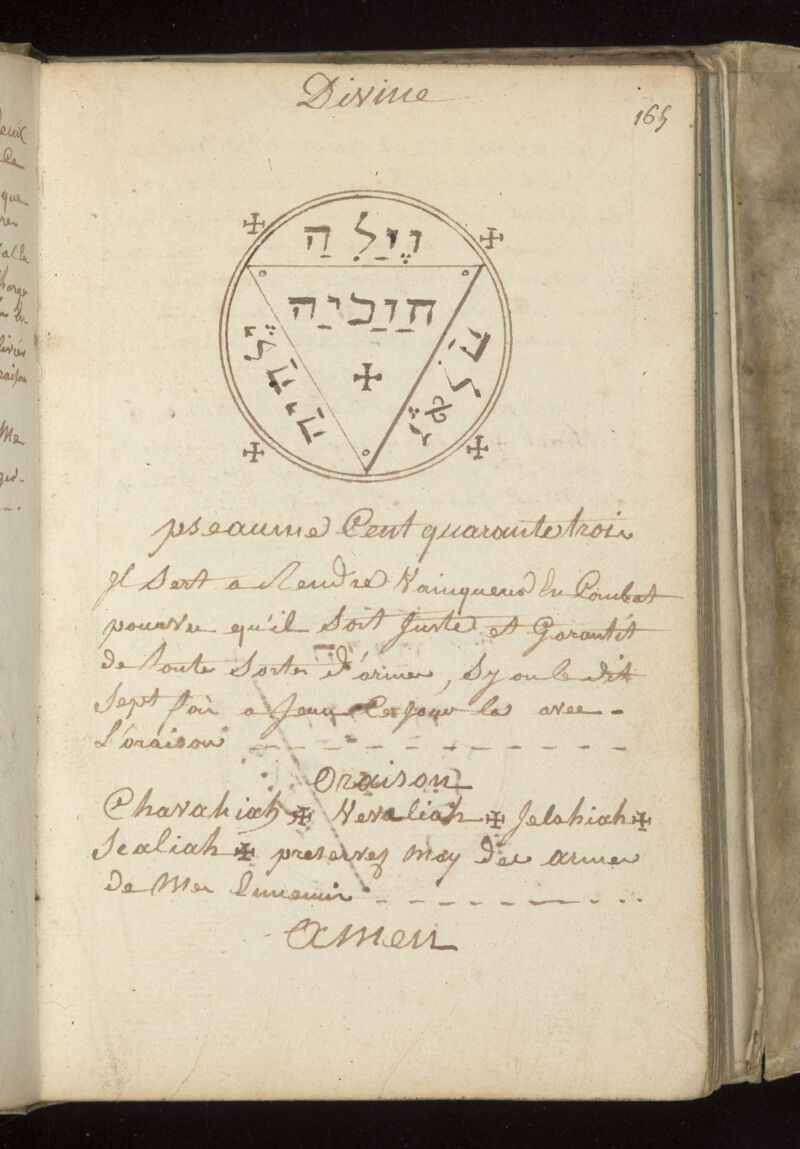 Divine
165
וֶיַלִ הַ
חַוַכִיַה
pseaume Cent quarante trois
Jl Sert a Rendre Vainqueur En Combat
pourvu qu'il Soit Juste et Garantit
de toute Sortes d'armes, Sy on le dit
Sept fois a Jeun Ce jour la avec -
L'oraison - - - - - - - - -
Oraison
Chavakiah ✠ Vevaliah ✠ Jelahiah ✠
Sealiah ✠ preservez moy des armes
de Mes Ennemis - - - - - - - - . .
Amen